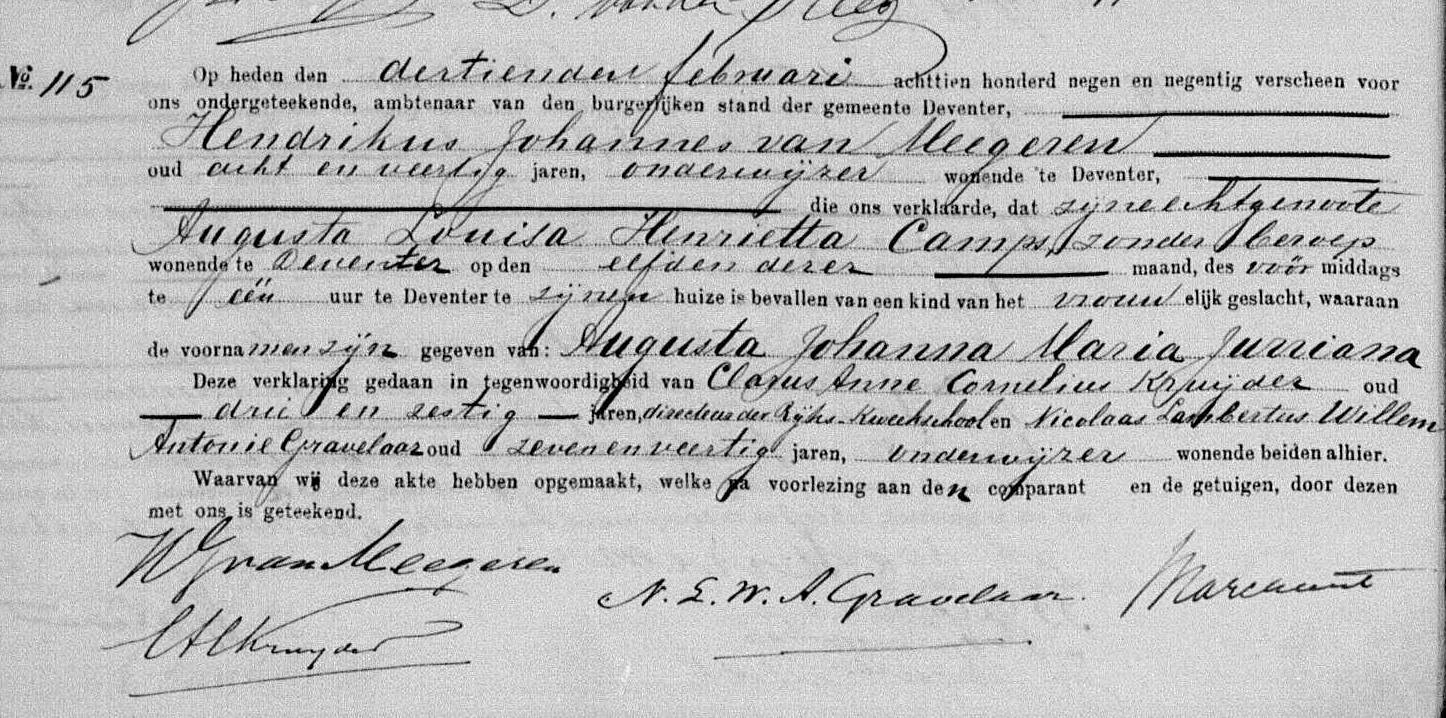 No. 115
Op heden den dertienden februari achttien honderd negen en negentig verscheen voor
ons ondergeteekende, ambtenaar van den burgerlijken stand der gemeente Deventer,
Hendrikus Johannes van Meegeren
oud acht en veertig jaren, onderwijzer wonende te Deventer,
die ons verklaarde, dat zijne echtgenoote
Augusta Louisa Henrietta Camps, zonder beroep
wonende te Deventer op den elfden dezer maand, des vóór middags
te één uur te Deventer te zijnen huize is bevallen van een kind van het vrouwelijk geslacht, waaraan
de voornamen zijn gegeven van: Augusta Johanna Maria Jurriana
Deze verklaring gedaan in tegenwoordigheid van Clasus Anne Cornelius Kruyder oud
drie en zestig jaren, directeur der Rijks-Kweekschool en Nicolaas Lambertus Willem
Antonie Gravelaar oud zeven en veertig jaren, onderwijzer wonende beiden alhier.
Waarvan wij deze akte hebben opgemaakt, welke na voorlezing aan den comparant en de getuigen, door dezen
met ons is geteekend.
HJ van Meegeren
N. L. W. A. Gravelaar.
Kruyder